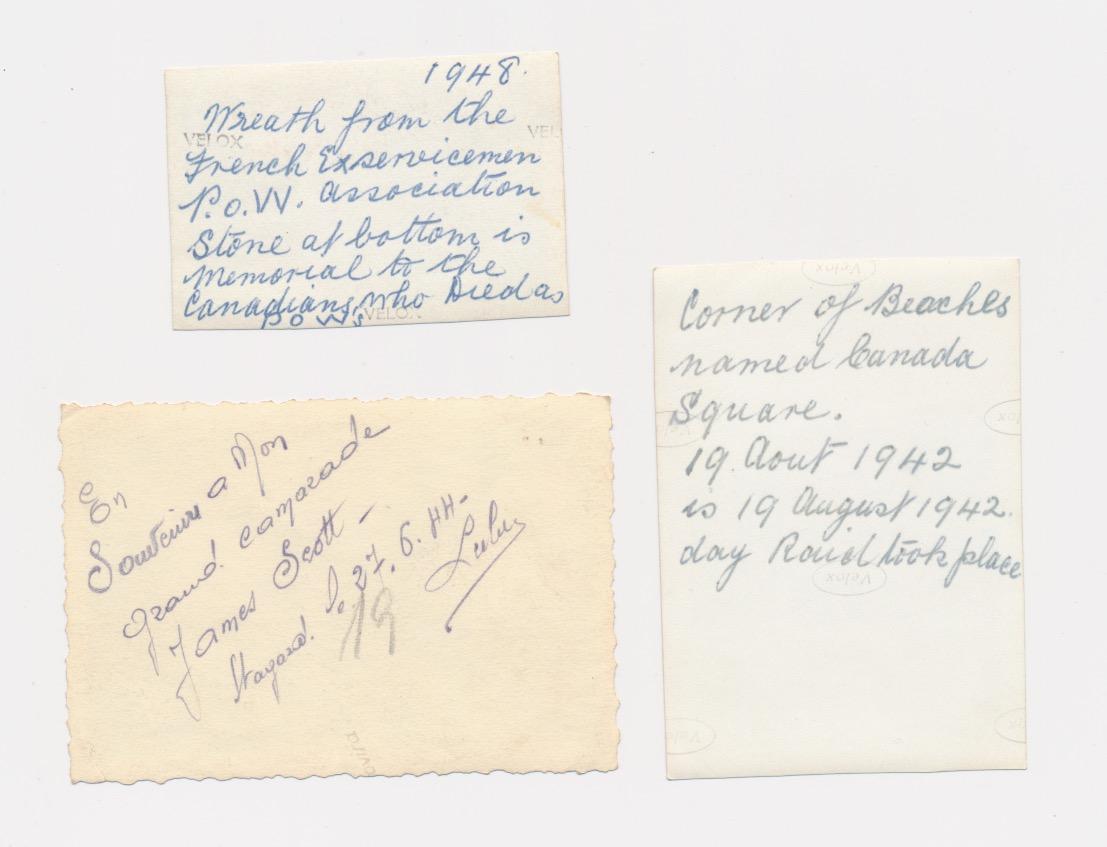 1948.
Wreath from the
VELOX
VEL
French Exservicemen
P.O.W. Association
Stone at bottom is
Memorial to the
Canadians, who Died as
P O W's
VELOX
Velox
Corner of Beaches
named Canada
Square.
19. Aout 1942
is 19 August 1942.
day Raid took place
Velox
En
Souvenir a Mon
Grand camarade
James Scott -
Stargard. le 27. 6. 44-
19